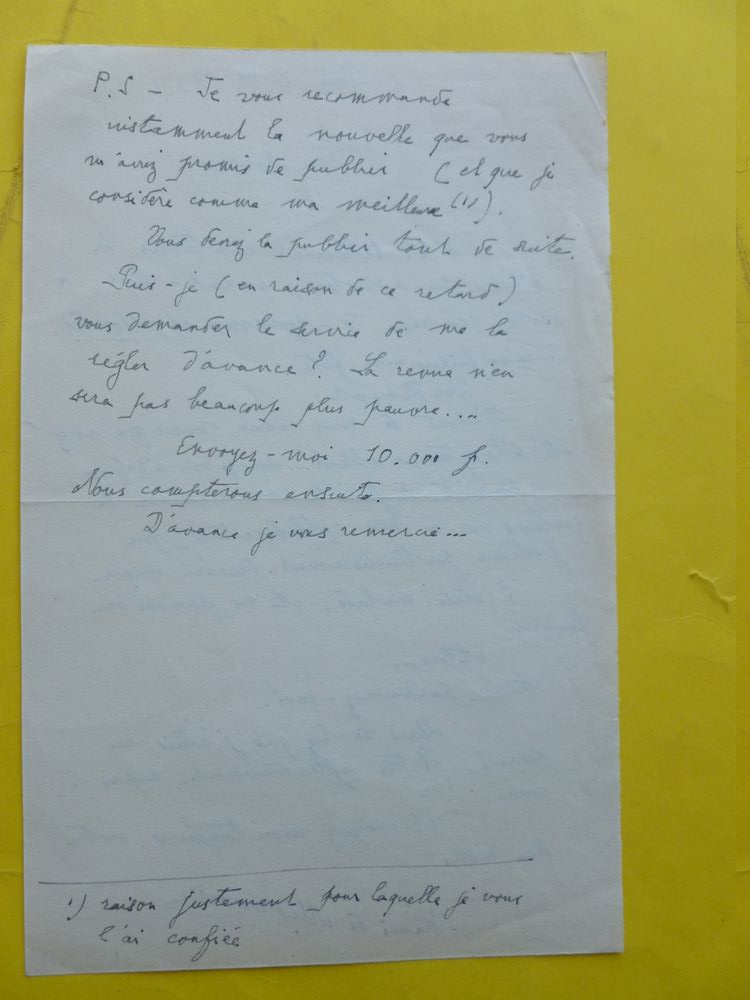 P.S – Je vous recommande
instamment la nouvelle que vous
m'avez promis de publier (et que je
considère comme ma meilleure (1)).
Vous deviez la publier tout de suite.
Puis-je (en raison de ce retard)
vous demander le service de me la
régler d'avance ? La revue n'en
sera pas beaucoup plus pauvre....
Envoyez-moi 10.000 f.
Nous compterons ensuite.
D'avance je vous remercie...
1) raison justement pour laquelle je vous
l'ai confiée